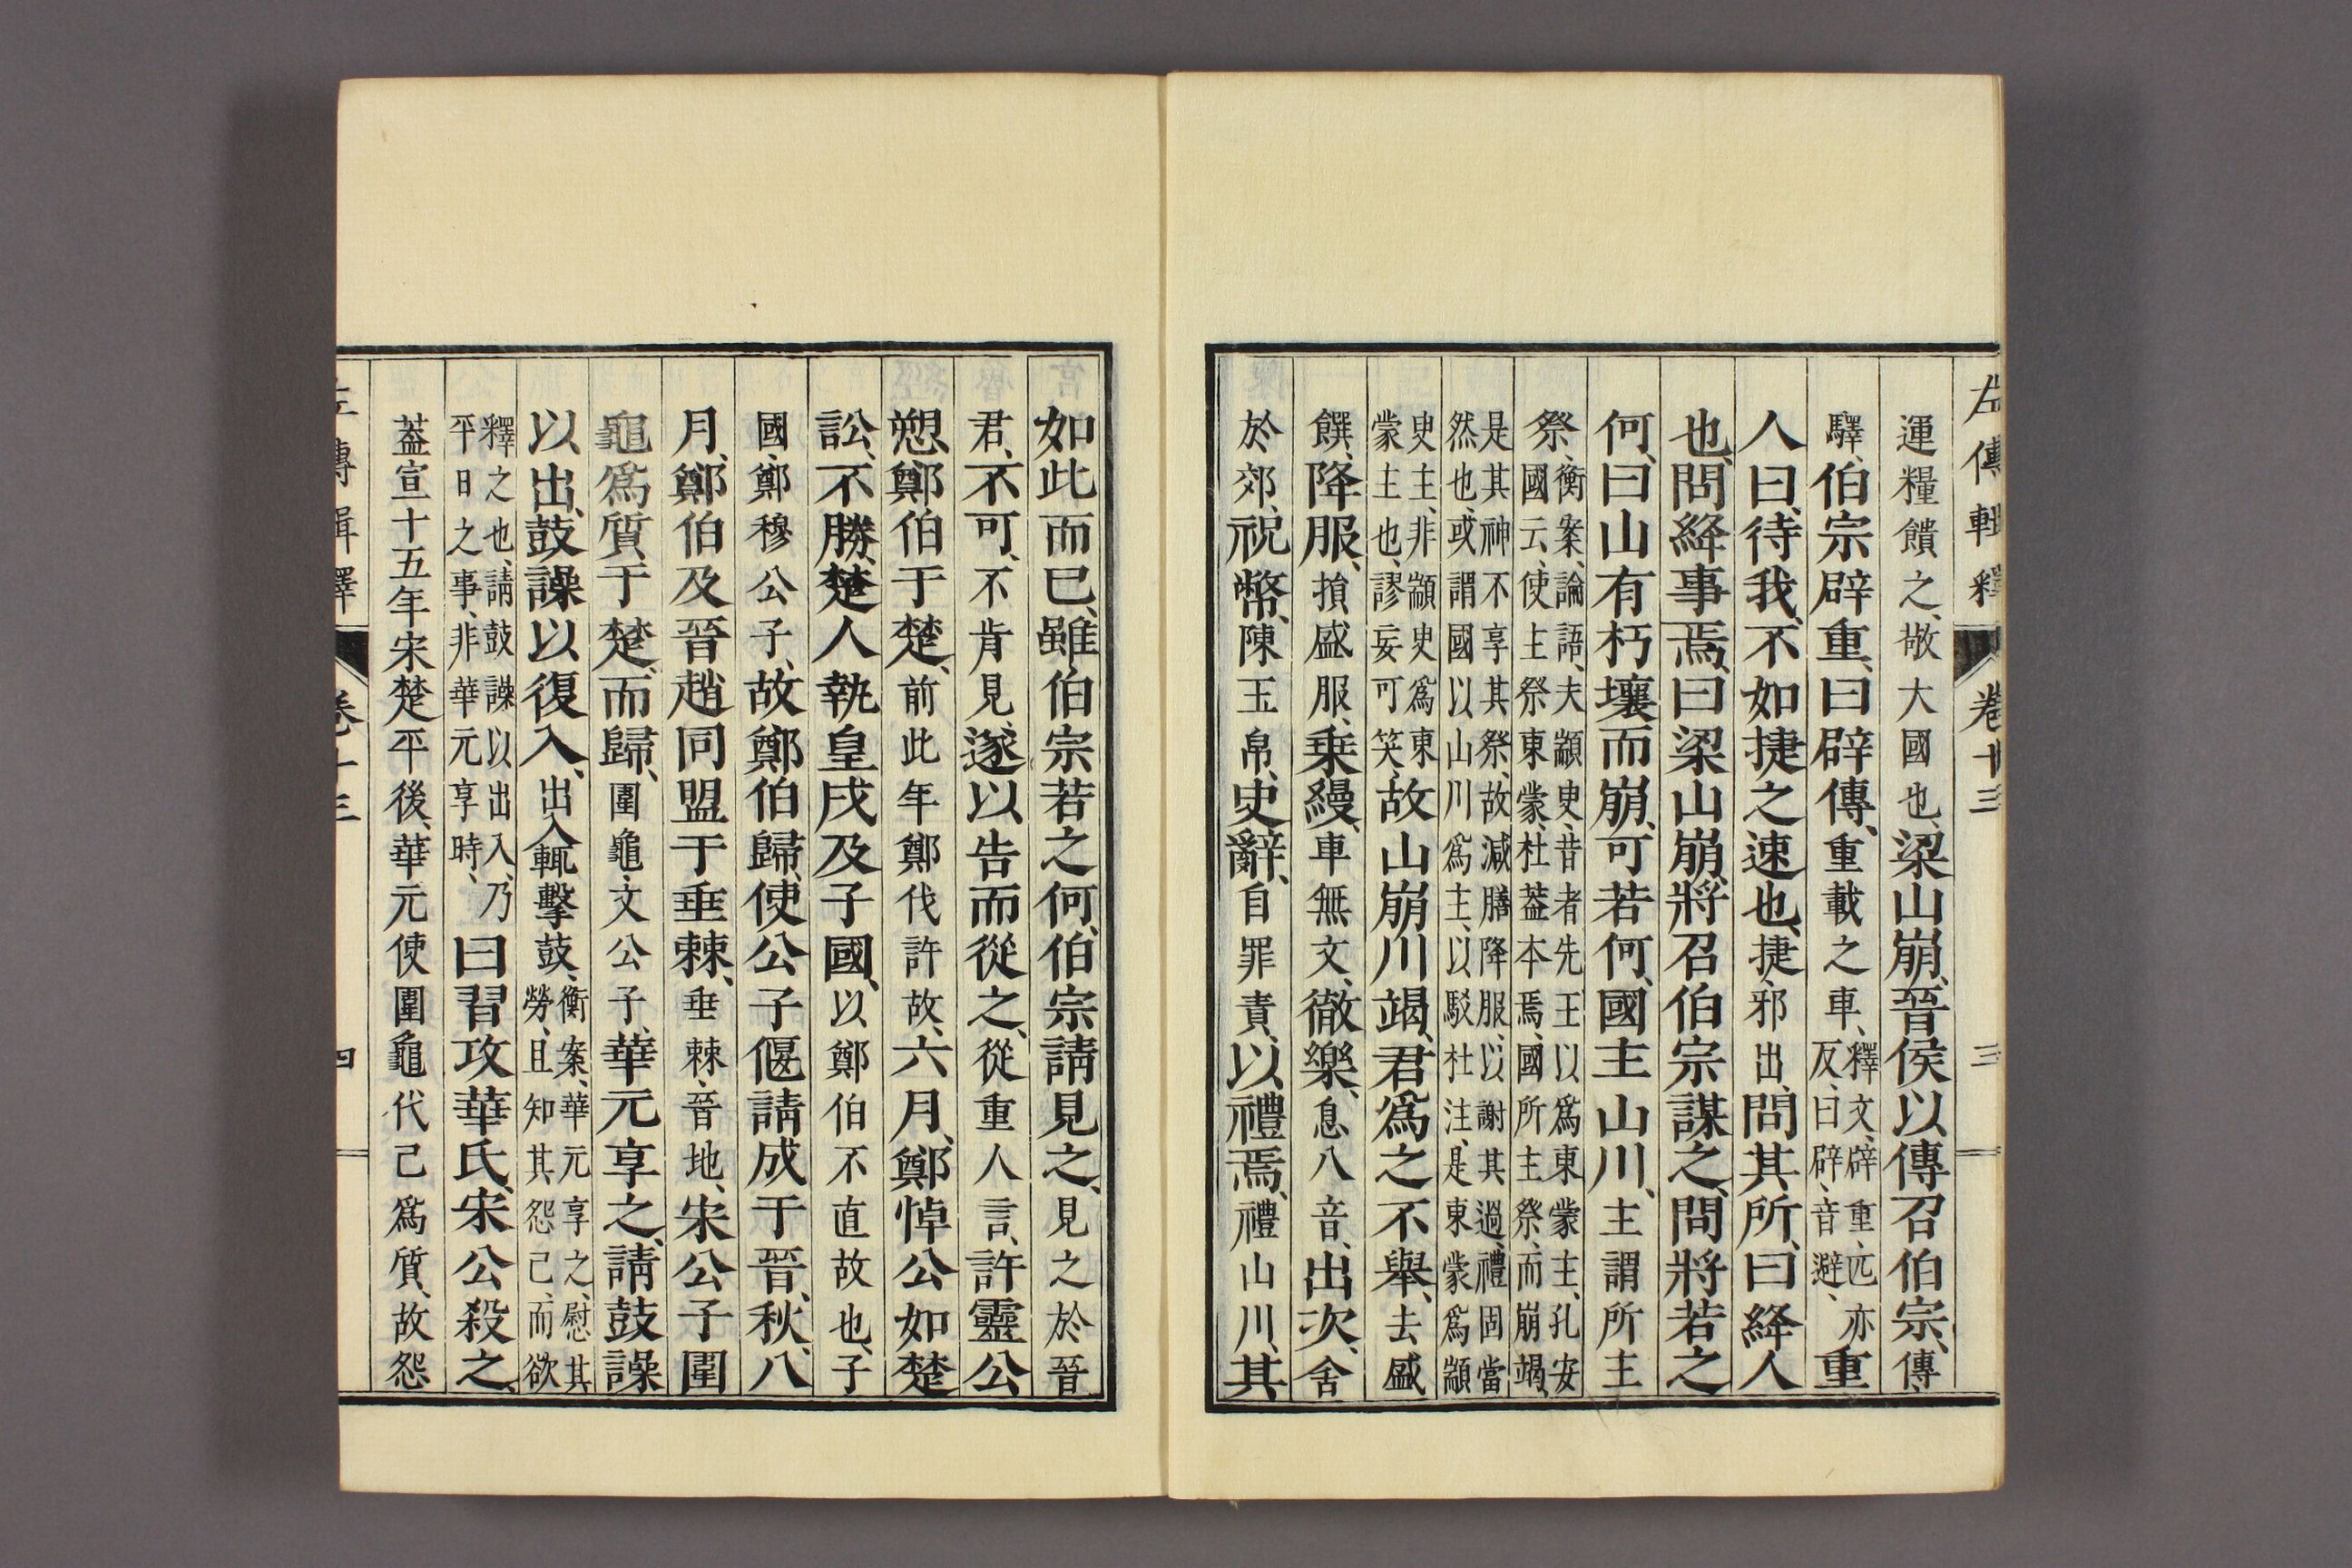 左傳輯釋 卷十三 三
運糧饋之、敬大國也、梁山崩、晉侯以傳召伯宗、傳、
驛、伯宗辟重、曰辟傳、重載之車、釋文、辟重、匹亦反、曰辟、音避、重
人曰、待我、不如捷之速也、捷、邪出、問其所、曰絳人
也、問絳事焉、曰梁山崩、將召伯宗謀之、問將若之
何、曰山有朽壤而崩、可若何、國主山川、主謂所主
祭、衡案、論語、夫顓臾、昔者先王以爲東蒙主、孔安國云、使主祭東蒙、杜蓋本焉、國所主祭、而崩竭、
是其神不享其祭、故減膳降服、以謝其過、禮固當然也、或謂國以山川爲主、以駁杜注、是東蒙爲顓
臾主、非顓臾爲東蒙主也、謬妄可笑、故山崩川竭、君爲之不舉、去盛
饌、降服、損盛服、乘縵、車無文、徹樂、息八音、出次、舍
於郊、祝幣、陳玉帛、史辭、自罪責、以禮焉、禮山川、其
如此而已、雖伯宗若之何、伯宗請見之、見之於晉
君、不可、不肯見、遂以告而從之、從重人言、許靈公
愬鄭伯于楚、前此年鄭伐許故、六月、鄭悼公如楚
訟、不勝、楚人執皇戌及子國、以鄭伯不直故也、子
國、鄭穆公子、故鄭伯歸、使公子偃請成于晉、秋、八
月、鄭伯及晉趙同盟于垂棘、垂棘、晉地、宋公子圍
龜爲質于楚、而歸、圍龜、文公子、華元享之、請鼓譟
以出、鼓譟以復入、出入輒擊鼓、衡案、華元享之、慰其勞、且知其怨己、而欲
釋之也、請鼓譟以出入、乃平日之事、非華元享時、曰習攻華氏、宋公殺之、
蓋宣十五年宋楚平後、華元使圍龜代己爲質、故怨
左傳輯釋 卷十三 四